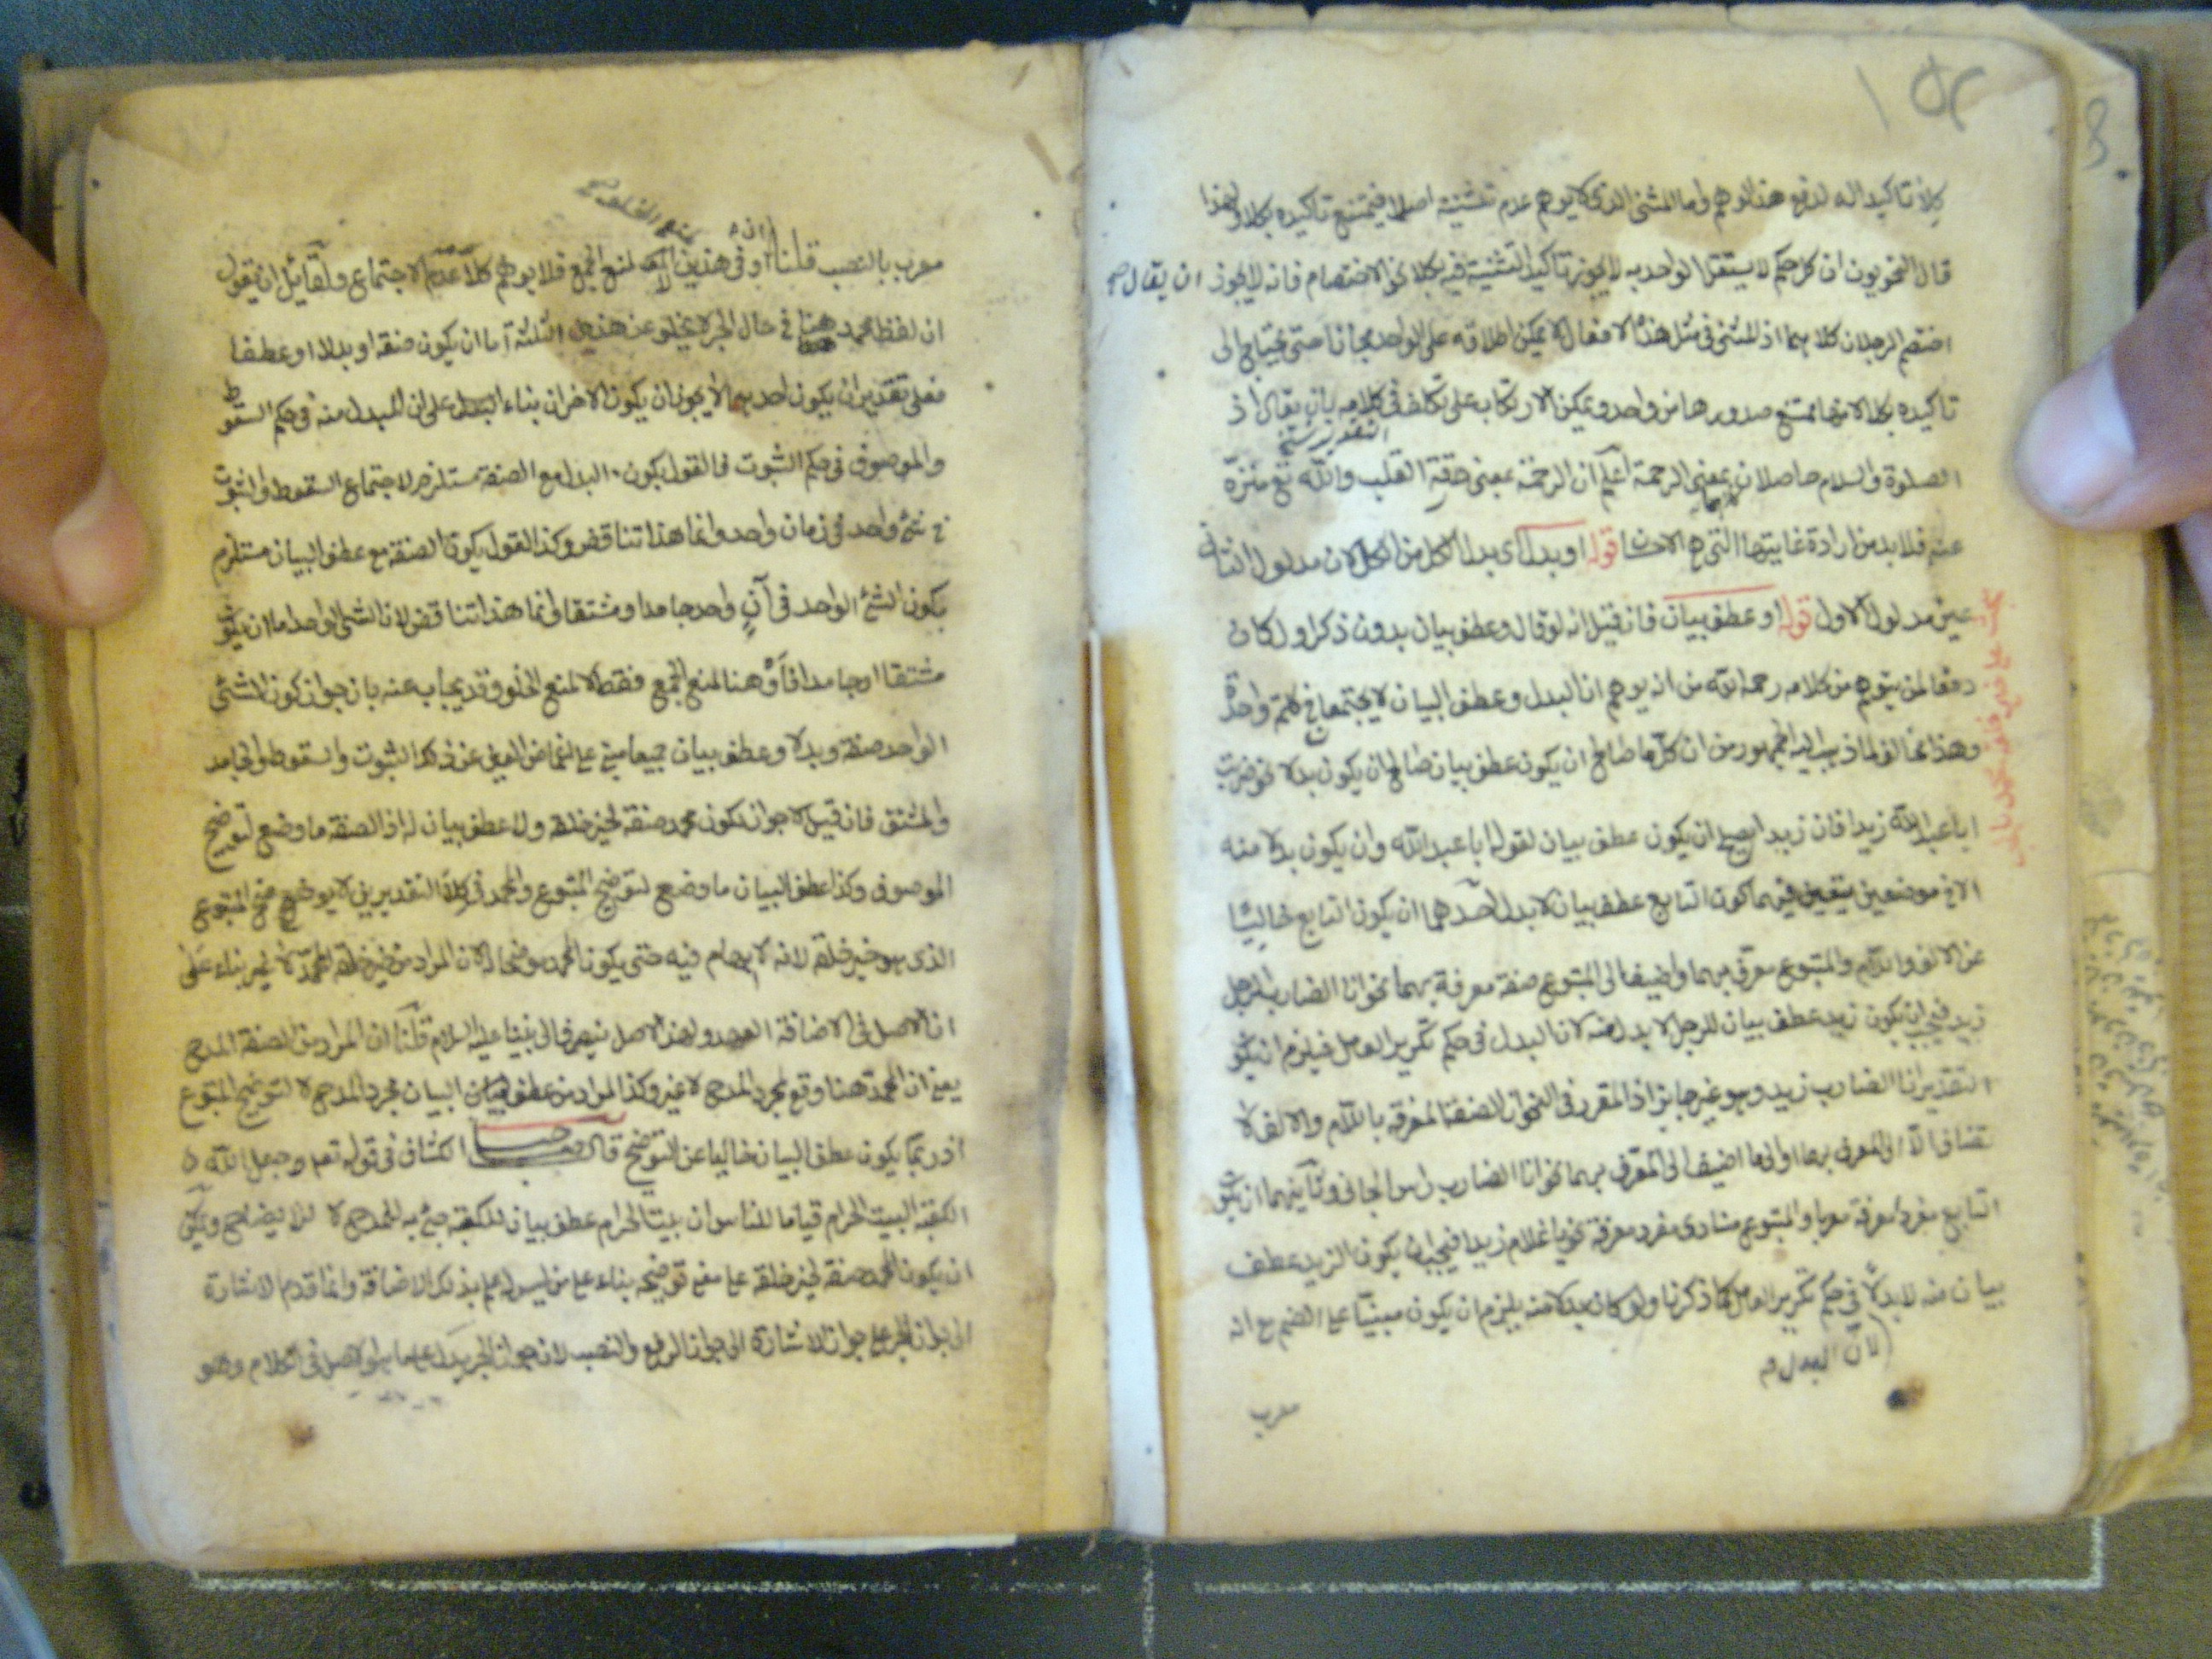 كلا تأكيدا له لدفع هذا الوهم واما المثنى الذى لا يوهم عدم تثنيته اصلا فيمتنع تأكيده بكلا ولهذا
قال النحويون ان كل حكم لا يستقر الواحد به لا يجوز تأكيد التثنية فيه بكلا نحو الاختصام فانه لا يجوز ان يقال صح
اختصم الرجلان كلاهما اذ المثنى فى مثل هذه الافعال لا يمكن اطلاقه على الواحد مجازا حتى يحتاج الى
تأكيده بكلا لانها يمتنع صدورها من واحد ويمكن الارتكاب على تكلف فى كلامه بان يقال اذ
التقدير
الصلوة والسلام حاصلان بمعنى الرحمة اعلم ان الرحمة بمعنى رقة القلب والله تع منزه
عنه فلا بد من ارادة غايتها التى هى الاحسان قوله او بدل اى بدل الكل من الكل لان مدلول الثانى
عين مدلول الاول قوله او عطف بيان فان قيل انه لو قال وعطف بيان بدون ذكر او لكان
دفعا لمن يتوهم من كلامه رحمه الله من انه يوهم ان البدل وعطف البيان لا يجتمعان فى كلمة واحدة
وهذا مخالف لما ذهب اليه الجمهور من ان كل ما صالح ان يكون عطف بيان صالح ان يكون بدلا نحو ضربت
ابا عبد الله زيدا فان زيدا يصلح ان يكون عطف بيان لقوله ابا عبد الله وان يكون بدلا منه
الا فى موضعين يتعين فيهما كون التابع عطف بيان لا بدل احدهما ان يكون التابع خاليا
عن الالف واللام والمتبوع معرف بهما واضيف الى المتبوع صفة معرفة بهما نحو انا الضارب الرجل
زيد فيجب ان يكون زيد عطف بيان للرجل لا بدل منه لان البدل فى حكم تكرير العامل فيلزم ان يكون
التقدير انا الضارب زيد وهو غير جايز اذ المقرر فى النحو ان الصفة المعرفة باللام والالف لا
تضاف الا الى المعرف بهما او الى ما اضيف الى المعرف بهما نحو انا الضارب رأس الجانى وثانيهما ان يكون
التابع مفردا معرفة معربا والمتبوع منادى مفرد معرفة نحو يا غلام زيدا فيجب ان يكون الزيد عطف
بيان منه لا بدلا فى حكم تكرير العامل كما ذكرنا ولو كان بدلا منه يلزم ان يكون مبنيا على الضم مع انه
لان البدل
معرب
معرب بالنصب قلنا او فى هذين لمنع الجمع فلا يوهم كلا عدم الاجتماع ولقائل ان يقول
ان لفظ محمد هنا فى حال الجر لا يخلو عن هذه الثلثة اما ان يكون صفة او بدلا او عطفا
فعلى تقدير ان يكون احدهما لا يجوز ان يكون الاخران بناء البدل على ان المبدل منه فى حكم السقوط
والموصوف فى حكم الثبوت فالقول بكون البدل مع الصفة مستلزم لاجتماع السقوط والثبوت
فى شئ واحد فى زمان واحد وانما هذا تناقض وكذا القول بكون الصفة مع عطف البيان مستلزم
بكون الشئ الواحد فى آن واحد جامدا ومشتقا وانما هذا تناقض لان الشئ الواحد اما ان يكون
مشتقا او جامدا فأو هنا لمنع الجمع فقط لا لمنع الخلو وقد يجاب عنه بان جواز كون الشئ
الواحد صفة وبدلا وعطف بيان جميعا مبنى على اغماض العين عن ذكر الثبوت والسقوط والجامد
والمشتق فان قيل لا جواز لكون محمد صفة لخير خلقه ولا عطف بيان له اذ الصفة ما وضع لتوضيح
الموصوف وكذا عطف البيان ما وضع لتوضيح المتبوع والمحمد فى كلا التقديرين لا يوضح المتبوع
الذى هو خير خلقه لانه لا ابهام فيه حتى يكون المحمد موضحا له لان المراد من خير خلقه المحمد لا غير بناء على
ان الاصل فى الاضافة العهد ولهذا الاصل ينصرف الى نبينا عليه السلام قلنا ان المراد من الصفة المدح
يعنى ان المحمد هنا وقع لمجرد المدح لا غير وكذا المراد من عطف البيان مجرد المدح لا لتوضيح المتبوع
اذ ربما يكون عطف البيان خاليا عن التوضيح قال صاحب الكشاف فى قوله تعم وجعل الله
الكعبة البيت الحرام قياما للناس ان بيت الحرام عطف بيان للكعبة جئ به للمدح لا للايضاح ويمكن
ان يكون المحمد صفة لخير خلقه على معنى توضيحه بناء على من ليس له علم بذكر الاضافة وانما قدم الاشارة
الى جواز الجر على جواز الاشارة الى جواز الرفع والنصب لان جواز الجر يدل على ما هو الاصل فى الكلام وهو